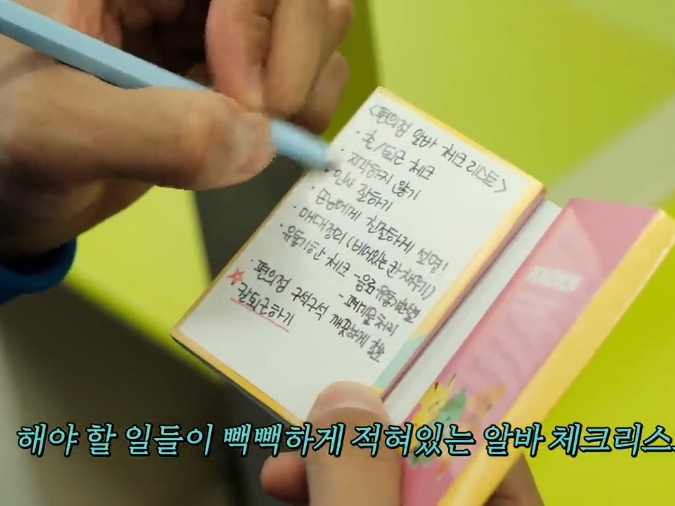 <편의점 알바 체크리스트>
· 출/퇴근 체크
· 지각하지 않기
· 인사 잘하기
· 손님에게 친절하게 설명!
· 매대정리 (비어있는 칸 채우기)
· 유통기한 체크 -음료 유통기한
- 폐기물 처리
· 편의점 구석구석 깨끗하게 청소
☆ 칼퇴근하기
해야 할 일들이 빽빽하게 적혀있는 알바 체크리스